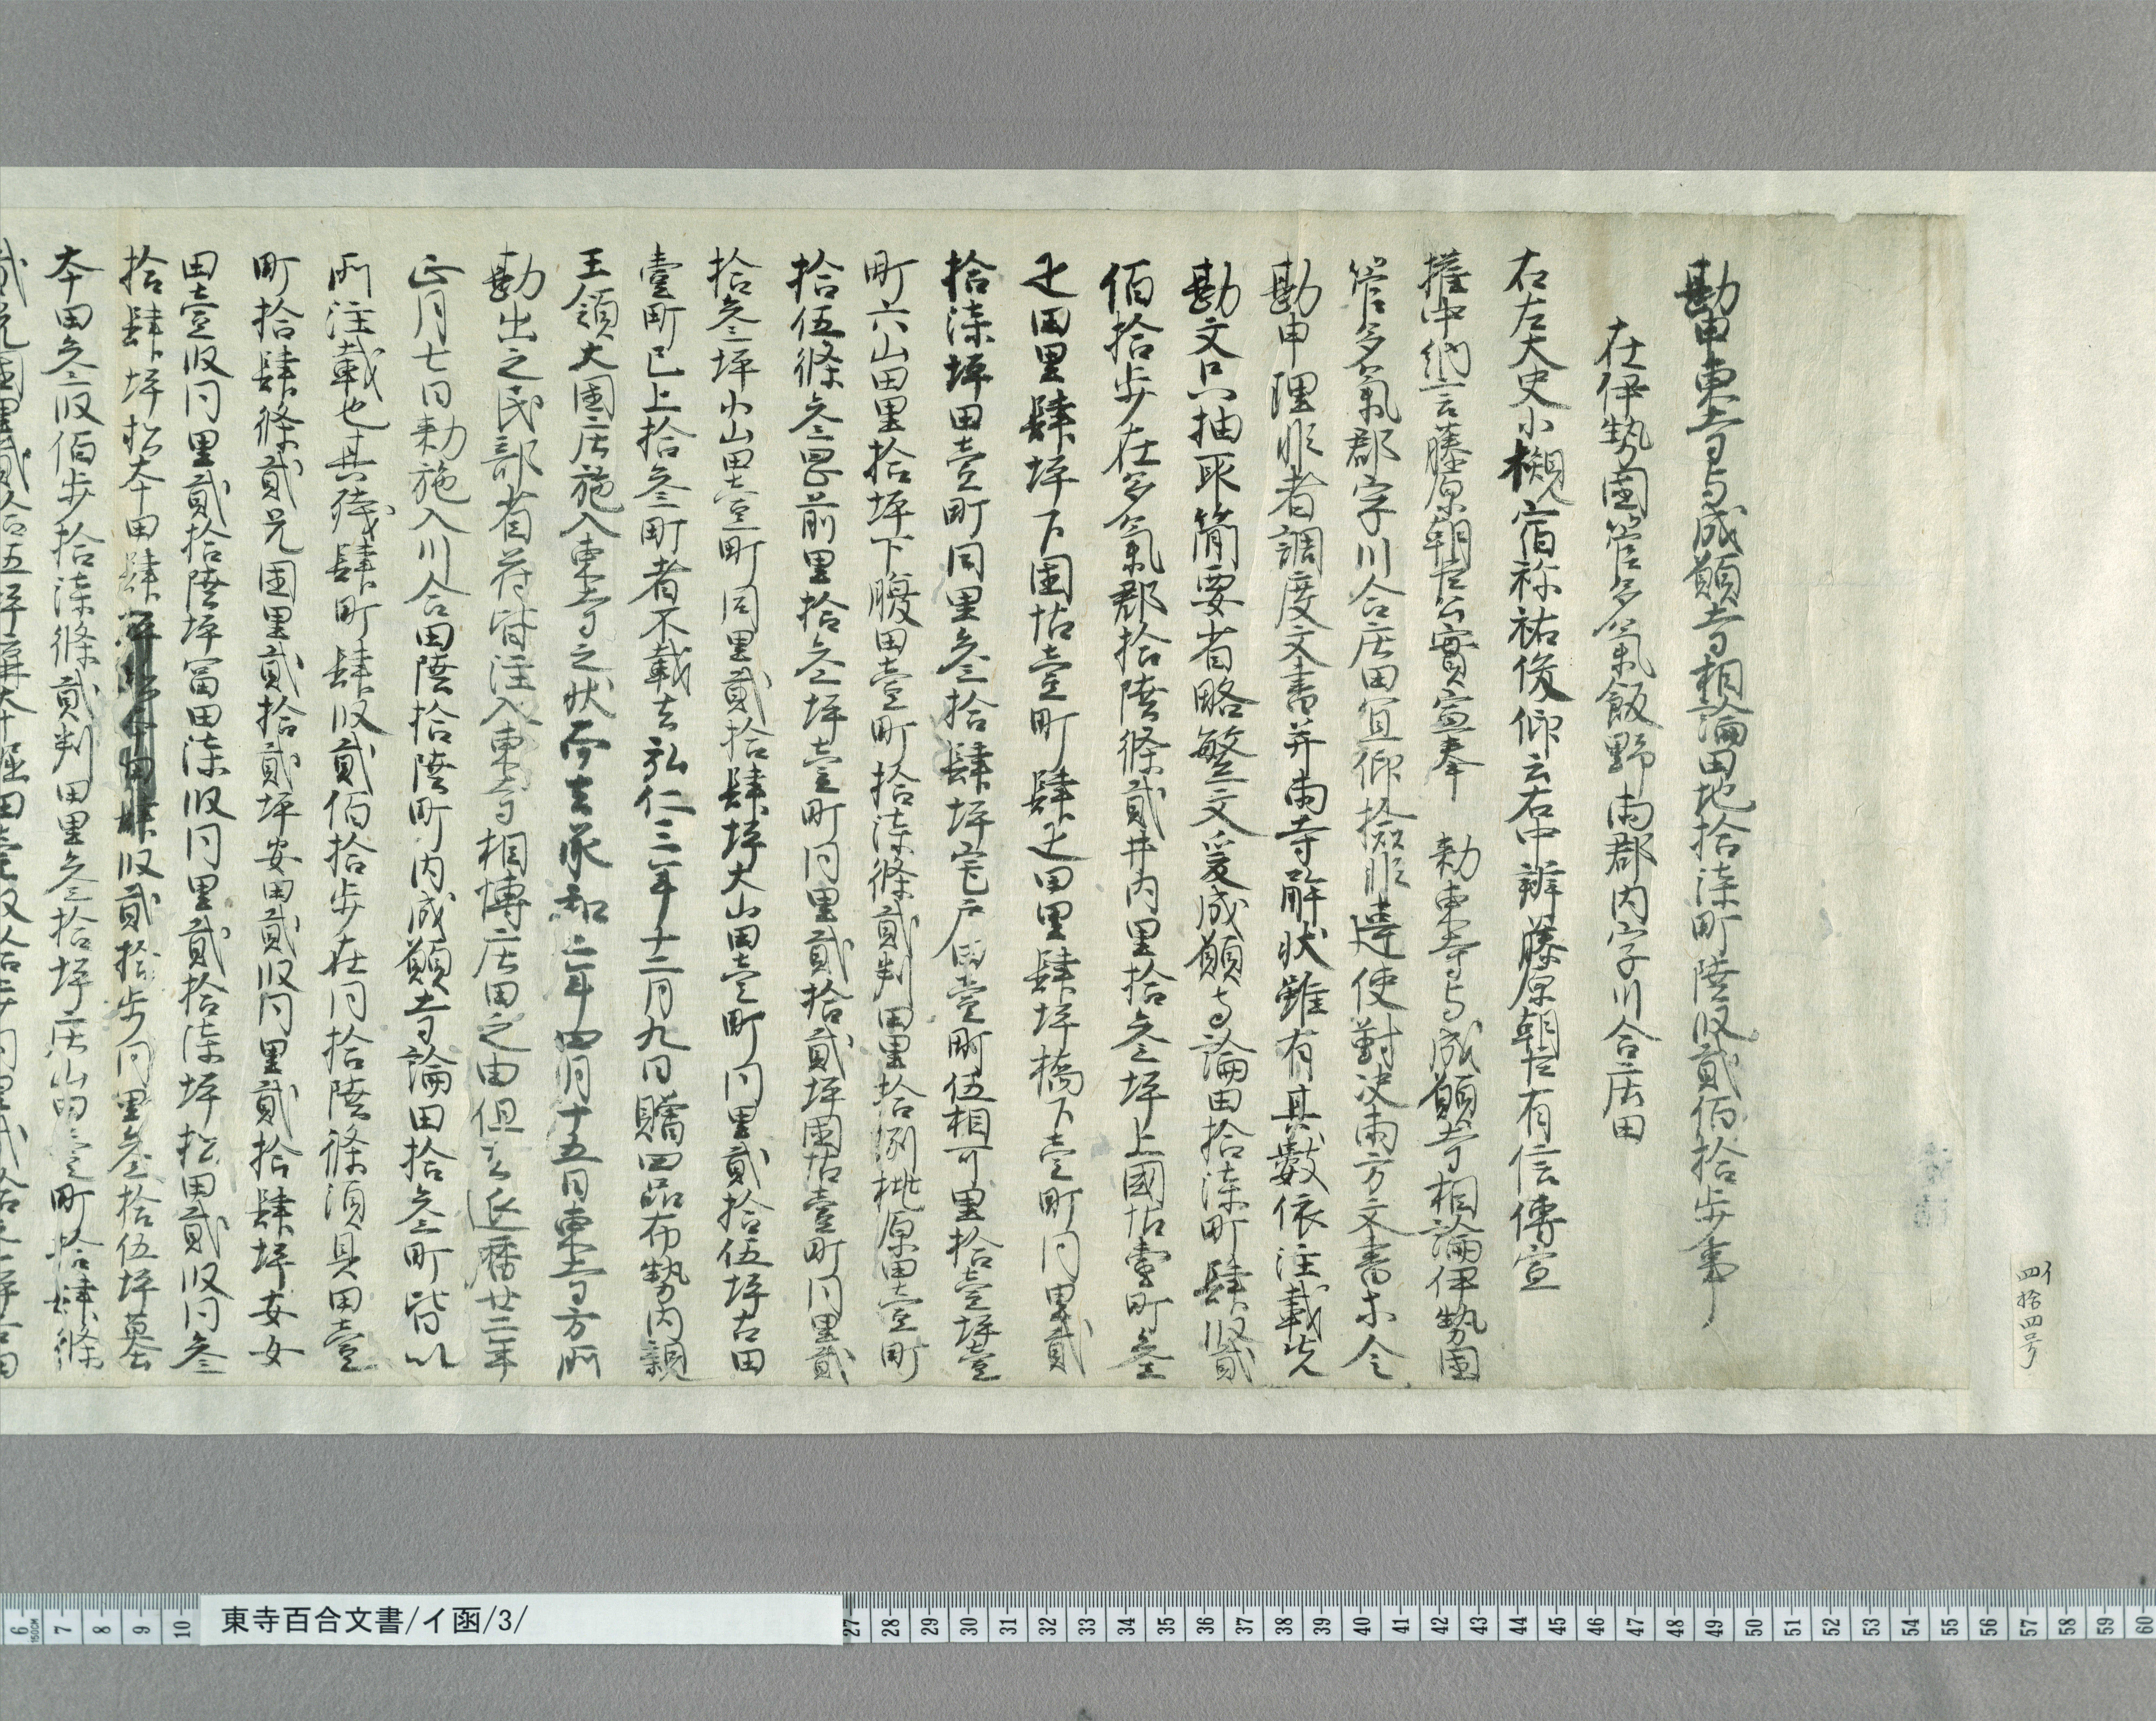 イ
四拾四号
勘申東寺与成願寺相論田地拾漆町陸段貳佰拾歩事
在伊勢國管多氣飯野両郡内字川合庄田
右左大史小槻宿祢祐俊仰云右中辨藤原朝臣有信傳宣
權中納言藤原朝臣公實宣奉 勅東寺与成願寺相論伊勢國
管多氣郡字川合庄田宜仰撿非違使對決両方文書亦令
勘申理非者調度文書并両寺解状雖有其數依注載先
勘文只抽取簡要省略繁文爰成願寺論田拾漆町肆段貳
佰拾歩在多氣郡拾陸條貳井内里拾叁坪上國佃壹町叁
疋田里肆坪下國佃壹町肆疋田里肆坪橋下壹町同里貳
拾漆坪田壹町同里叁拾肆坪宅戸田壹町伍相可里拾壹坪壹
町六山田里拾坪下腹田壹町拾漆條貳判田里拾捌枇原田壹町
拾伍條叁里前里拾叁坪壹町同里貳拾貳坪國佃壹町同里貳
拾叁坪小山田壹町同里貳拾肆坪大山田壹町同里貳拾伍坪古田
壹町已上拾叁町者不載去弘仁三年十二月九日賜四品布勢内親
王領大國庄施入東寺之状而去承和二年四月十五日東寺方所
勘出之民部省符皆注入東寺相博庄田之由但立延暦廿二年
正月七日勅施入川合田陸拾陸町内成願寺論田拾叁町皆以
所注載也其殘肆町肆段貳佰拾歩在同拾陸條須具田壹
町拾肆條貳兄國里貳拾貳坪安田貳段同里貳拾肆坪妄女
田壹段同里貳拾陸坪冨田漆段同里貳拾漆坪松田貳段同叁
拾肆坪松本田肆段貳拾歩同里叁拾伍坪墓
本田叁段佰歩拾漆條貳判田里叁拾坪庄山田壹町拾肆條
貳兄國里貳拾五坪
東寺百合文書/イ函/3/